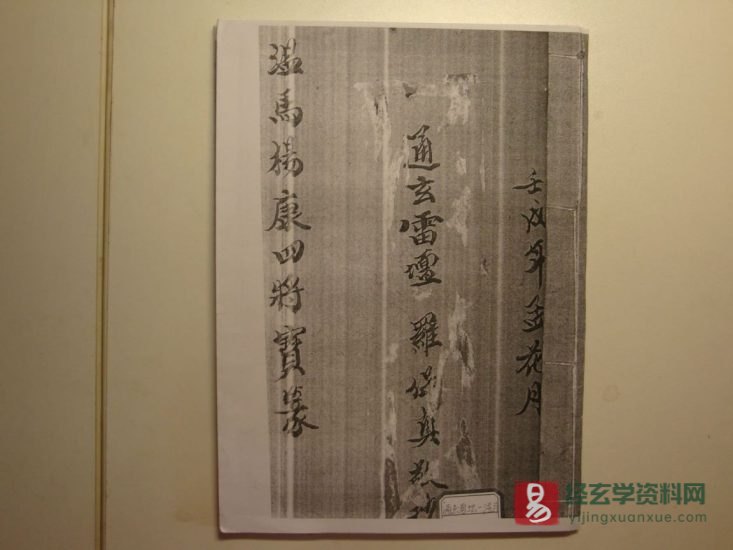 壬戌年金花月
通玄雷壇 羅保真敬抄
温馬楊康四將寶篆
易 经玄学资料网
yijingxuanxue.com